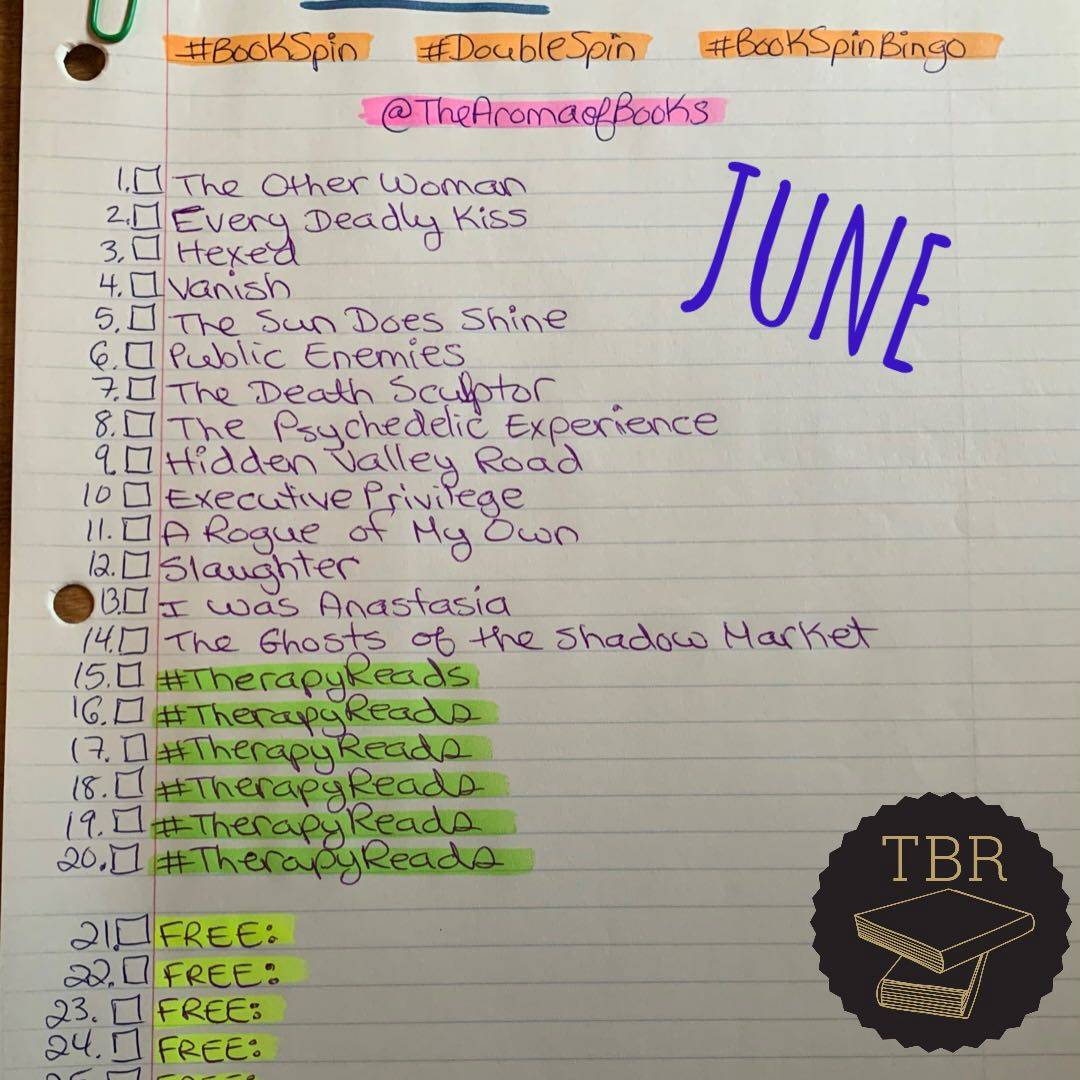 #BookSpin #DoubleSpin #BookSpinBingo
@TheAromaofBooks
JUNE
1. The Other Woman
2. Every Deadly Kiss
3. Hexed
4. Vanish
5. The Sun Does Shine
6. Public Enemies
7. The Death Sculptor
8. The Psychedelic Experience
9. Hidden Valley Road
10 Executive Privilege
11. A Rogue of My Own
12. Slaughter
13. I was Anastasia
14. The Ghosts of the Shadow Market
15. #TherapyReads
16. #TherapyReads
17. #TherapyReads
18. #TherapyReads
19. #TherapyReads
20. #TherapyReads
21. FREE:
22. FREE:
23. FREE:
24. FREE:
TBR